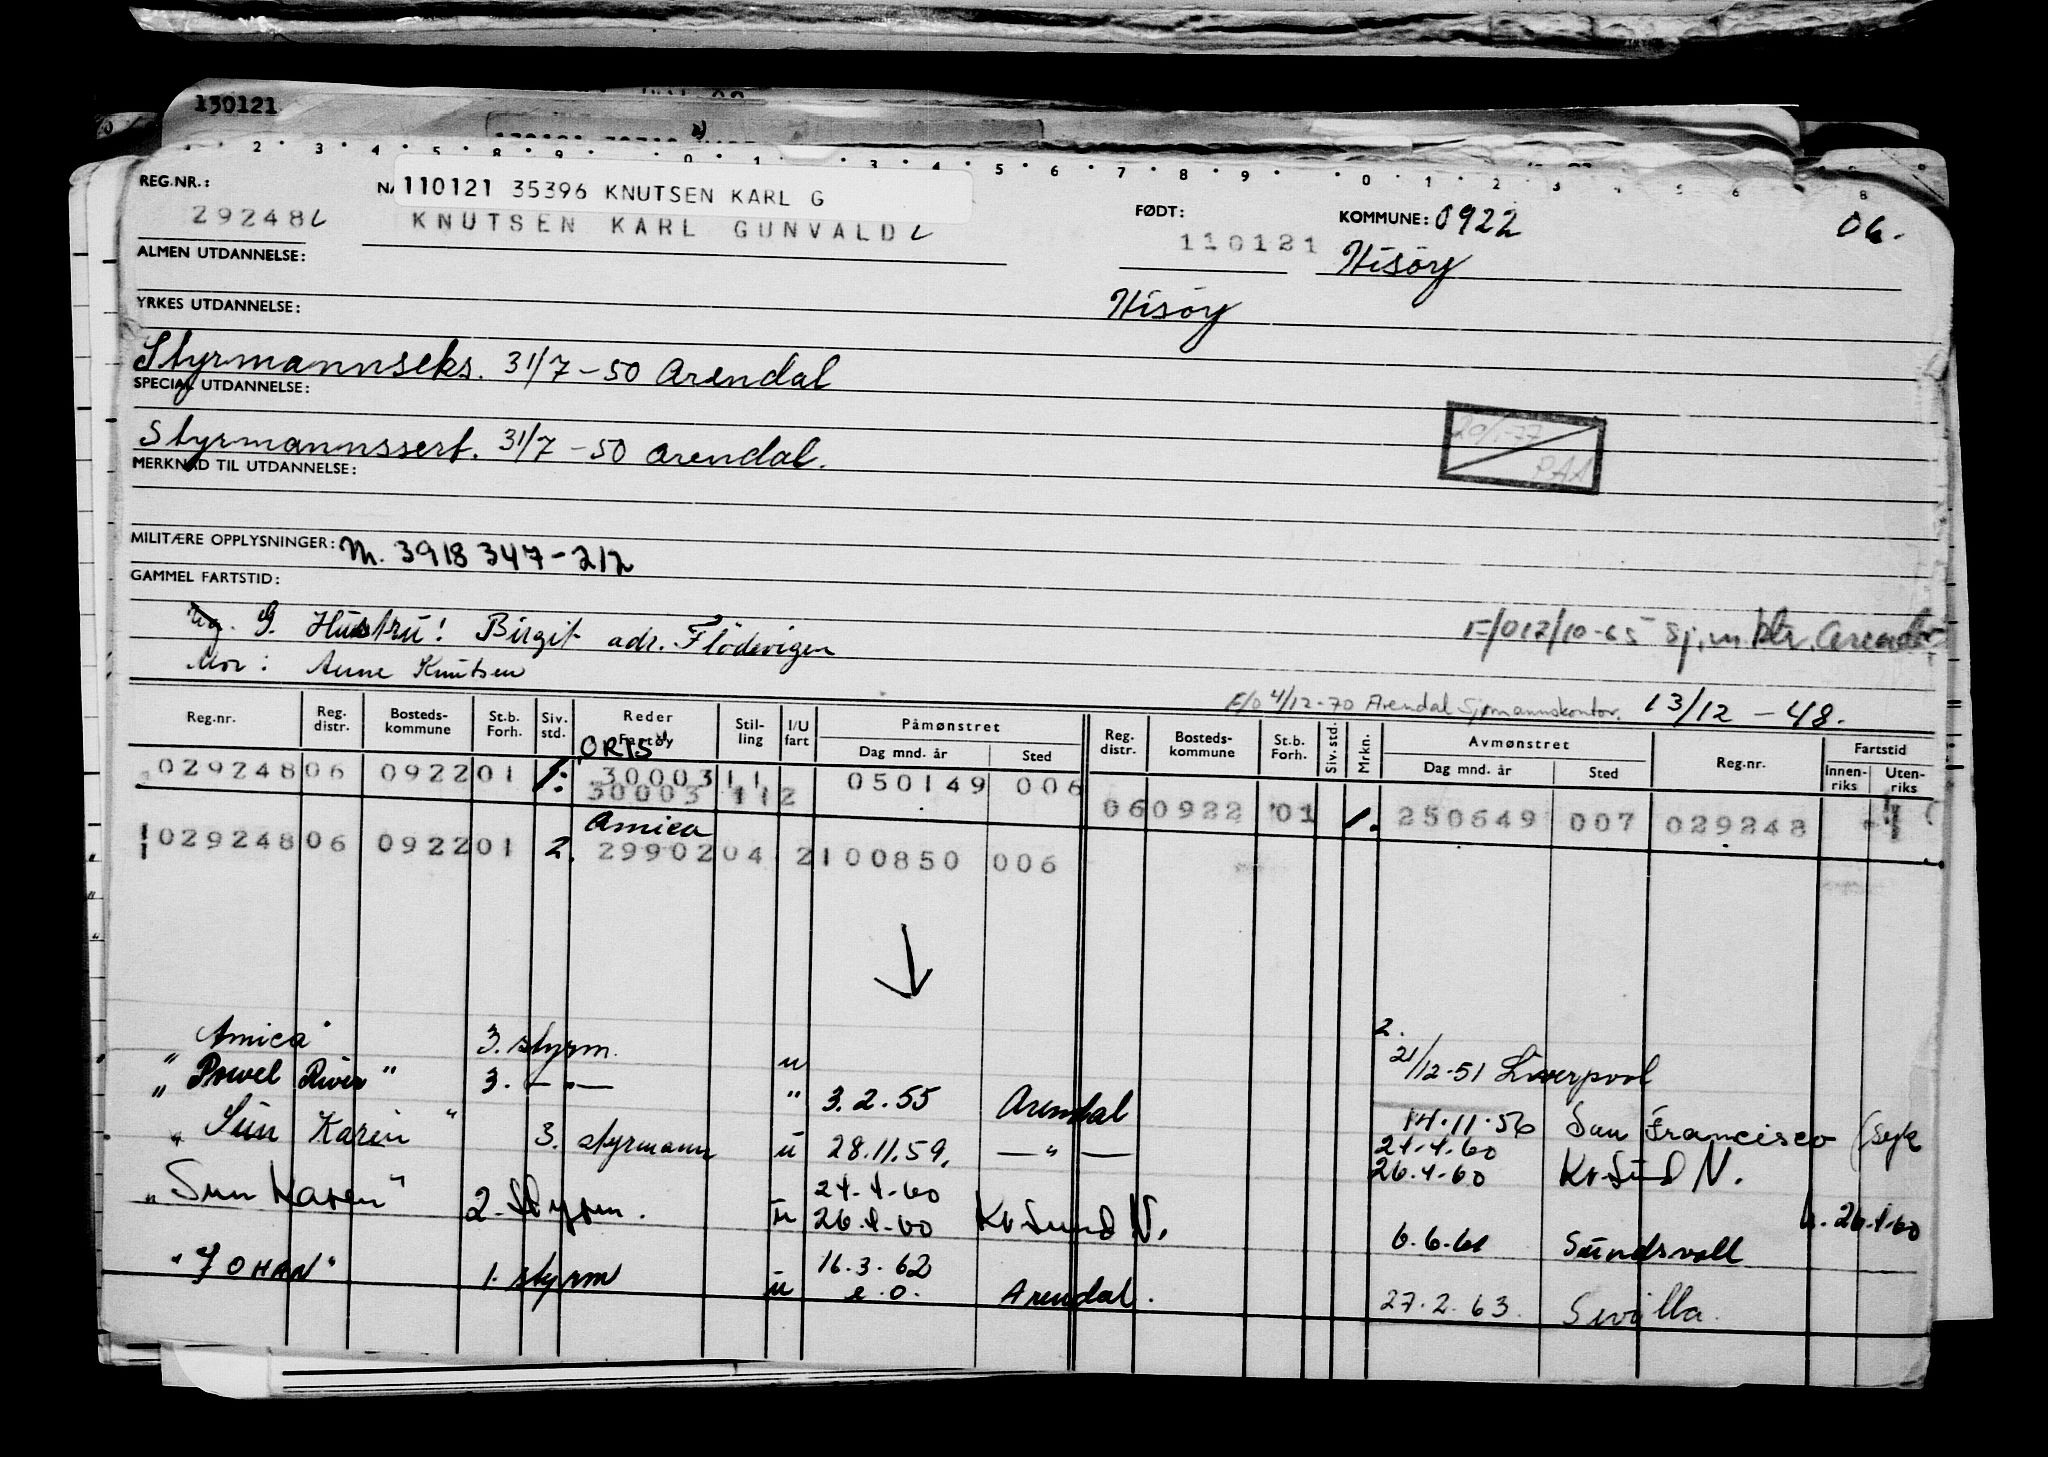 130121
2 3 4 5 8 9 0 1 3 4 5 6 7 8 9 0 1 2 3 4 5 6 8
REG.NR.: 110121 35396 KNUTSEN KARL G FØDT: KOMMUNE: 0922 06.
29248 KNUTSEN KARL GUNVALD 110121 Hisøy
ALMEN UTDANNELSE:
Hisøy
YRKES UTDANNELSE:
Styrmannseks. 31/7-50 Arendal
SPECIAL UTDANNELSE:
Styrmannssert. 31/7-50 Arendal.
MERKNAD TIL UTDANNELSE:
20/1-77
PAA
MILITÆRE OPPLYSNINGER: M. 3918 347-212
GAMMEL FARTSTID:
G. Hustru: Birgit adr. Flödevigen
12/10-65 Sj.m.ktr. Arendal
Mor: Anne Knutsen
F/o 4/12-70 Arendal Sjømannskontor. 13/12-48.
Reg.nr. Reg. distr. Bosteds-kommune St.b. Forh. Siv. std. Reder Fartøy Stil-ling I/U fart Påmønstret Dag mnd. år Sted Reg. distr. Bosteds-kommune St.b. Forh. Siv. std. Mrkn. Avmønstret Dag mnd. år Sted Reg.nr. Fartstid Innen-riks Uten-riks
"ORIS"
029248 06 0922 01 1. 30003 11 050149 006
30003 11 2 06 0922 01 1. 250649 007 029248
Amica
029248 06 0922 01 2. 29902 04 2 100850 006
2.
Amica" 3. styrm. u 21/12-51 Liverpool
"Powel River" 3. — " — " 3.2.55 Arendal 14.11.56 San Francisco (syk
"Sun Karen" 3. styrmann u 28.11.59. — " — 24.4.60
26.4.60 Kr.Sund N.
"Sun Karen" 2. Styrm. u 24.4.60
26.4.60 Kr.Sund N. 6.6.61 Sundsvall 26.4.60
"JOHAN" 1. styrm u 16.3.62
e.o. Arendal. 27.2.63. Sevilla.